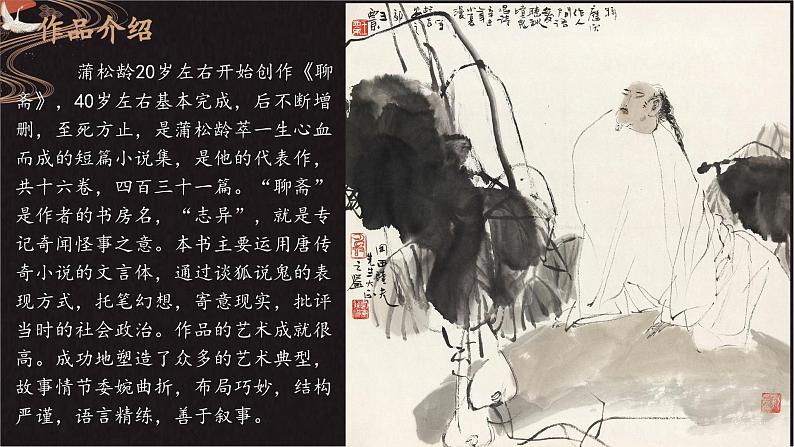 作品介绍
蒲松龄20岁左右开始创作《聊
斋》，40岁左右基本完成，后不断增
删，至死方止，是蒲松龄萃一生心血
而成的短篇小说集，是他的代表作，
共十六卷，四百三十一篇。“聊斋”
是作者的书房名，“志异”，就是专
记奇闻怪事之意。本书主要运用唐传
奇小说的文言体，通过谈狐说鬼的表
现方式，托笔幻想，寄意现实，批评
当时的社会政治。作品的艺术成就很
高。成功地塑造了众多的艺术典型，
故事情节委婉曲折，布局巧妙，结构
严谨，语言精练，善于叙事。